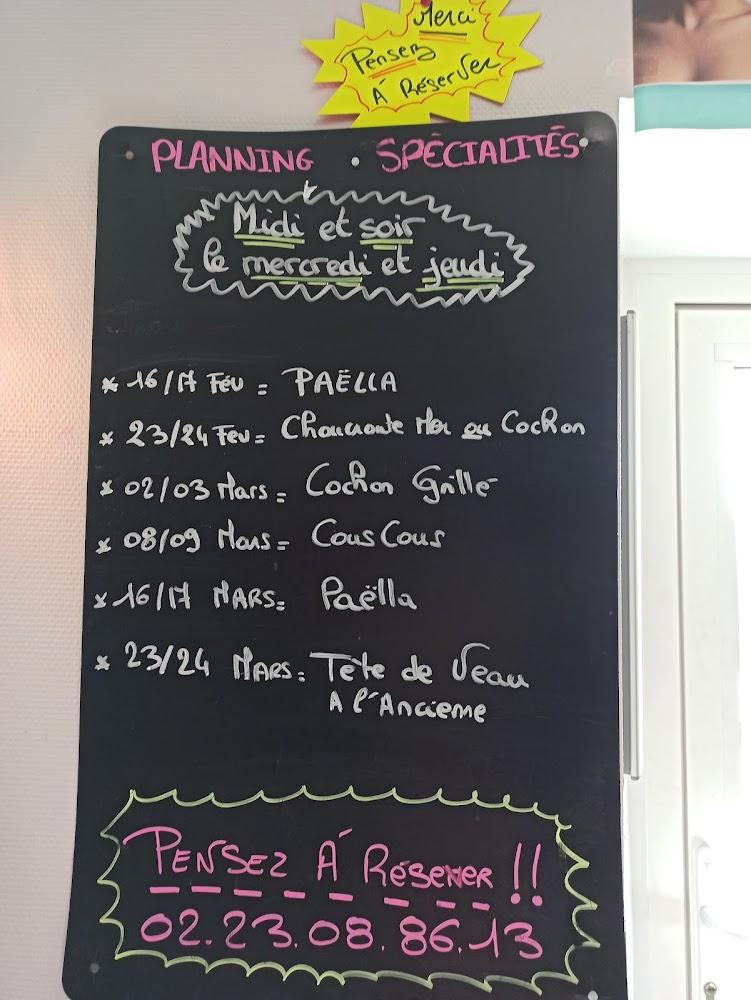 Merci
Pensez
À Réserver
PLANNING • SPÉCIALITÉS
Midi et soir
le mercredi et jeudi
* 16/17 Fév = PAËLLA
* 23/24 Fev = Choucroute Mer ou Cochon
* 02/03 Mars = Cochon Grillé
* 08/09 Mars = CousCous
* 16/17 MARS = Paëlla
* 23/24 MARS = Tête de Veau
A l'Ancienne
PENSEZ À RÉSERVER !!
02.23.08.86.13